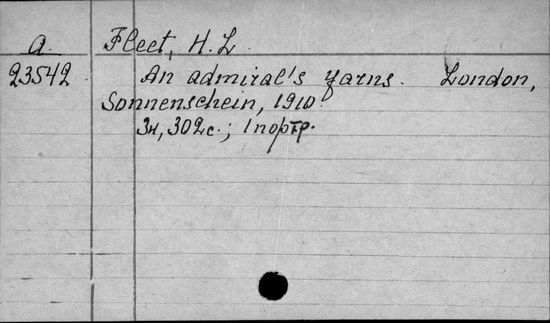 A. Fleet, H. L.
23542 An admiral's yarns. London,
Sonnenschein, 1910.
3н, 302с.; 1 портр.